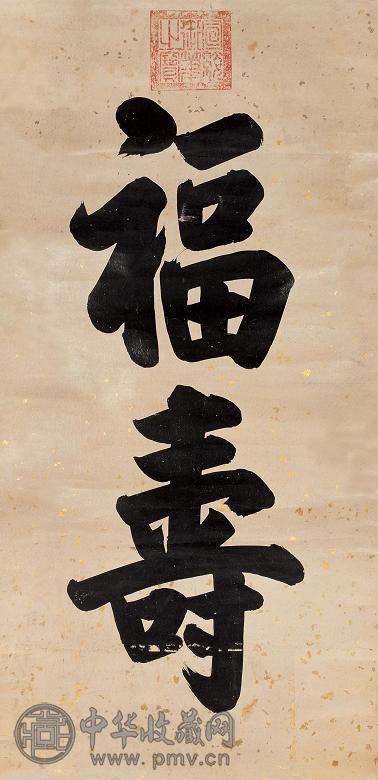 福
壽
中华收藏网
www.pmv.cn